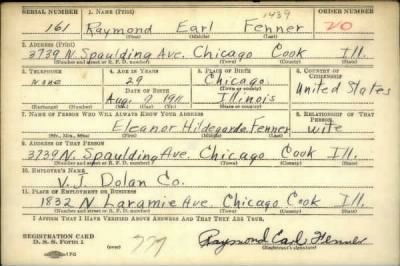 SERIAL NUMBER 1. NAME (Print) 1439 ORDER NUMBER
161 Raymond Earl Fenner
(First) (Middle) (Last)
2. ADDRESS (Print)
3739 N. Spaulding Ave. Chicago Cook Ill.
(Number and street or R. F. D. number) (Town) (County) (State)
3. TELEPHONE 4. AGE IN YEARS 5. PLACE OF BIRTH 6. COUNTRY OF CITIZENSHIP
None 29 Chicago
(Town or county)
DATE OF BIRTH United States
Aug. 7 1911 Illinois
(Exchange) (Number) (Mo.) (Day) (Yr.) (State or country)
7. NAME OF PERSON WHO WILL ALWAYS KNOW YOUR ADDRESS 8. RELATIONSHIP OF THAT PERSON
Eleanor Hildegarde Fenner wife
(Mr., Mrs., Miss) (First) (Middle) (Last)
9. ADDRESS OF THAT PERSON
3739 N. Spaulding Ave. Chicago Cook Ill.
(Number and street or R. F. D. number) (Town) (County) (State)
10. EMPLOYER'S NAME
V. J. Dolan Co.
11. PLACE OF EMPLOYMENT OR BUSINESS
1832 N. Laramie Ave. Chicago Cook Ill.
(Number and street or R. F. D. number) (Town) (County) (State)
I AFFIRM THAT I HAVE VERIFIED ABOVE ANSWERS AND THAT THEY ARE TRUE.
REGISTRATION CARD
D. S. S. Form 1
(over) Raymond Earl Fenner
(Registrant's signature)